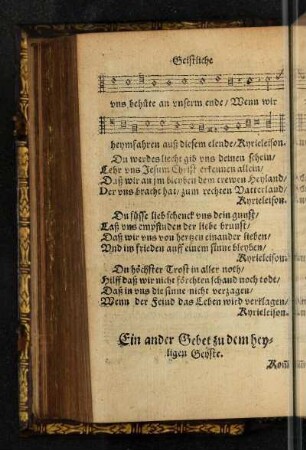 Geistliche
vns behüte an vnserm ende/ Wenn wir
heymfahren auß diesem elende/ Kyrieleison.
Du werdes liecht gib vns deinen schein/
Lehr vns Jesum Christ erkennen allein/
Daß wir an jm bleyben dem trewen Heyland/
Der vns bracht hat/ zum rechten Vatterland/
Kyrieleison.
Du süsse lieb schenck vns dein gunst/
Laß vns empfinden der liebe brunst/
Daß wir vns von hertzen einander lieben/
Vnd in frieden auff einem sinne bleyben/
Kyrieleison.
Du höchster Trost in aller noth/
Hilff daß wir nicht förchten schand noch todt/
Daß in vns die sinne nicht verzagen/
Wenn der Feind das Leben wird verklagen/
Kyrieleison.
Ein ander Gebet zu dem hey-
ligen Geyste.
Kom̃